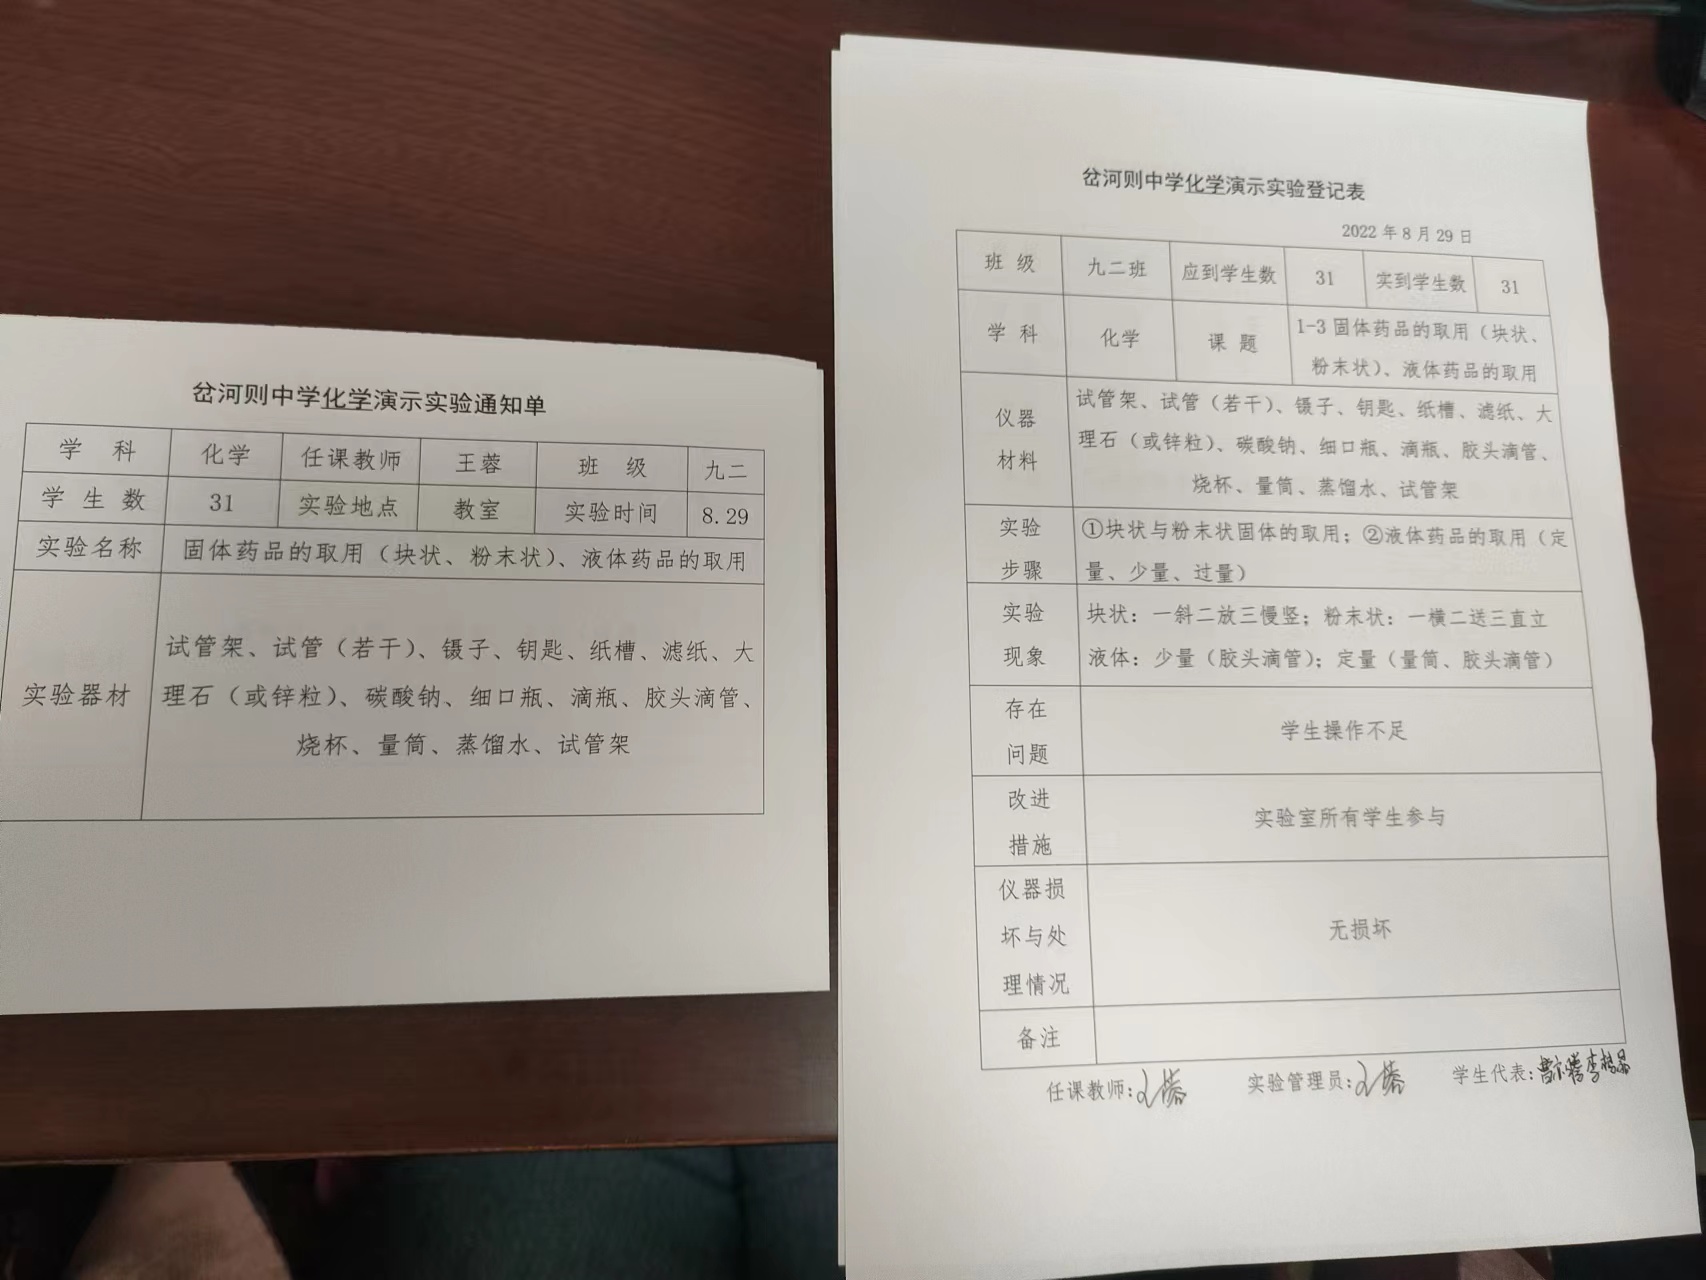 岔河则中学化学演示实验通知单
学 科 化学 任课教师 王蓉 班 级 九二
学 生 数 31 实验地点 教室 实验时间 8.29
实验名称 固体药品的取用（块状、粉末状）、液体药品的取用
实验器材
试管架、试管（若干）、镊子、钥匙、纸槽、滤纸、大
理石（或锌粒）、碳酸钠、细口瓶、滴瓶、胶头滴管、
烧杯、量筒、蒸馏水、试管架
岔河则中学化学演示实验登记表
2022 年 8 月 29 日
班 级 九二班 应到学生数 31 实到学生数 31
学 科 化学 课 题
1-3 固体药品的取用（块状、
粉末状）、液体药品的取用
仪器
材料
试管架、试管（若干）、镊子、钥匙、纸槽、滤纸、大
理石（或锌粒）、碳酸钠、细口瓶、滴瓶、胶头滴管、
烧杯、量筒、蒸馏水、试管架
实验
步骤
①块状与粉末状固体的取用；②液体药品的取用（定
量、少量、过量）
实验
现象
块状：一斜二放三慢竖；粉末状：一横二送三直立
液体：少量（胶头滴管）；定量（量筒、胶头滴管）
存在
问题
学生操作不足
改进
措施
实验室所有学生参与
仪器损
坏与处
理情况
无损坏
备注
任课教师：王蓉 实验管理员：王蓉 学生代表：